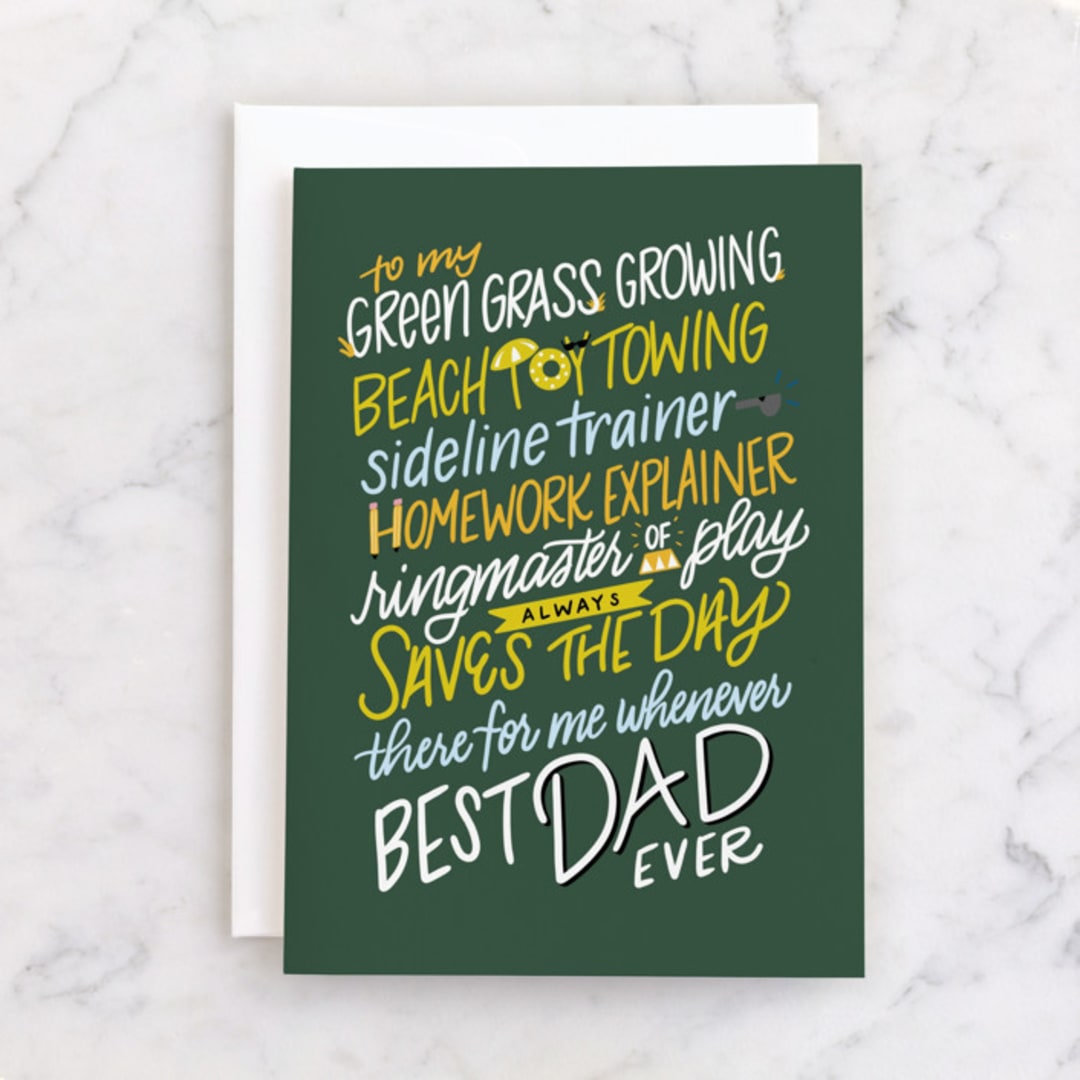 to my
GReen GRASS GROWING
BEACH TOY TOWING
sideline trainer
HOMEWORK EXPLAINER
ringmaster OF play
ALWAYS
SAVES THE DAY
there for me whenever
BEST DAD
EVER